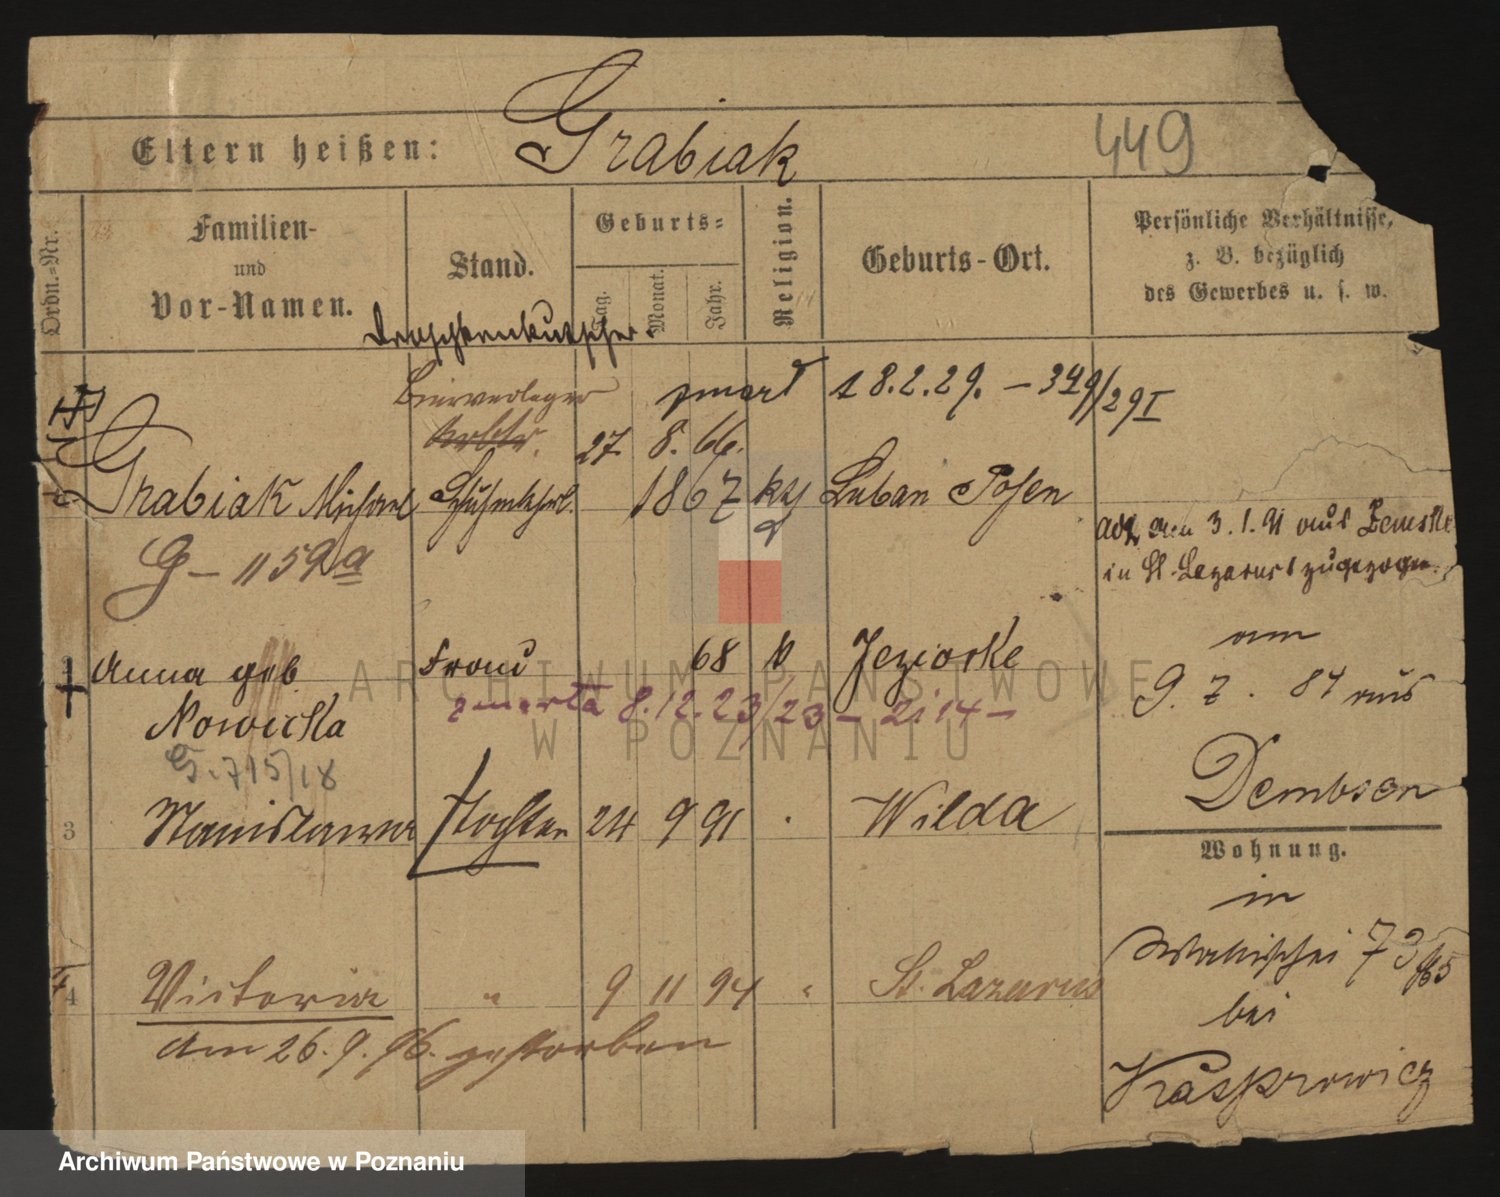 Grabiak
Eltern heißen:
449
Ordn.-Nr.
Familien-
und
Vor-Namen.
Stand.
Geburts-
Tag.
Monat.
Jahr.
Religion.
Geburts-Ort.
Persönliche Verhältnisse,
z. B. bezüglich
des Gewerbes u. s. w.
Droschkenkutscher
Bierverleger zmarł 18.2.29. – 349/29 I
27 8. 66.
Grabiak Michael 1867 kth Luban Posen
G – 1159a
abz. den 3.1.91 aus Zemske
in St. Lazarus zugezogen.
am
9. 7. 87 aus
Dembsen
Anna geb. Frau 68 k Jeziorke
Nowicka
zmarła 8.12.23/23 – 2114 –
G. 715/18
3 Stanislawa Tochter 24 9 91 Wilda
Wohnung.
in
Wallischei 73
bei
Kasprowicz
4 Victoria " 9 11 94 " St. Lazarus
am 26.9.96. gestorben
ARCHIWUM PAŃSTWOWE
W POZNANIU
Archiwum Państwowe w Poznaniu